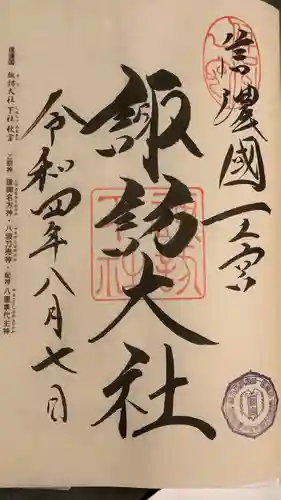 信濃國一之宮
諏訪大社
令和四年八月七日
諏訪大社 下社 秋宮
ご祭神 建御名方神・八坂刀売神・配神 八重事代主神